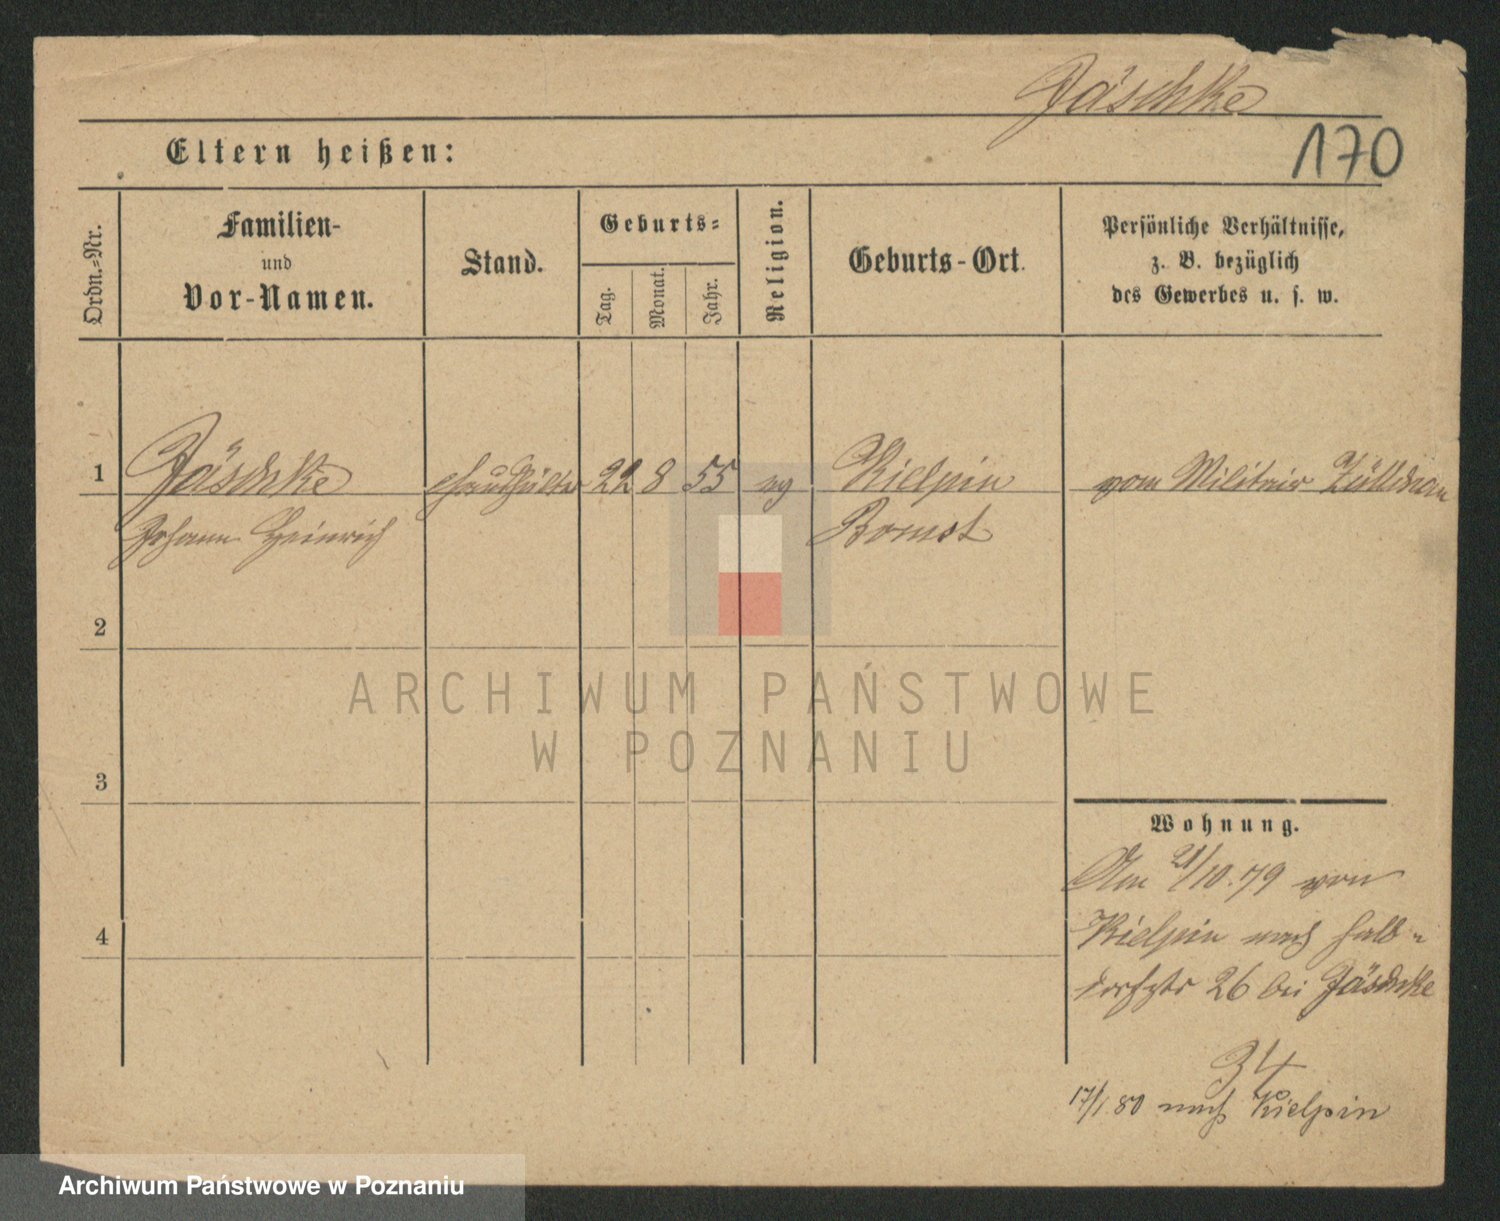 Jäschke
170
Eltern heißen:
Ordn.-Nr.
Familien-
und
Vor-Namen.
Stand.
Geburts-
Tag.
Monat.
Jahr.
Religion.
Geburts-Ort.
Persönliche Verhältnisse,
z. B. bezüglich
des Gewerbes u. s. w.
1
Jäschke
22
8
55
ev
Kielpin
vom Militair Züllchau
Johann Heinrich
Bomst
2
ARCHIWUM PAŃSTWOWE
W POZNANIU
3
Wohnung.
Am 21/10.79 von
Kielpin nach Halb-
dorfstr 26 bei Jäschke
34
17/1 80 nach Kielpin
4
Archiwum Państwowe w Poznaniu